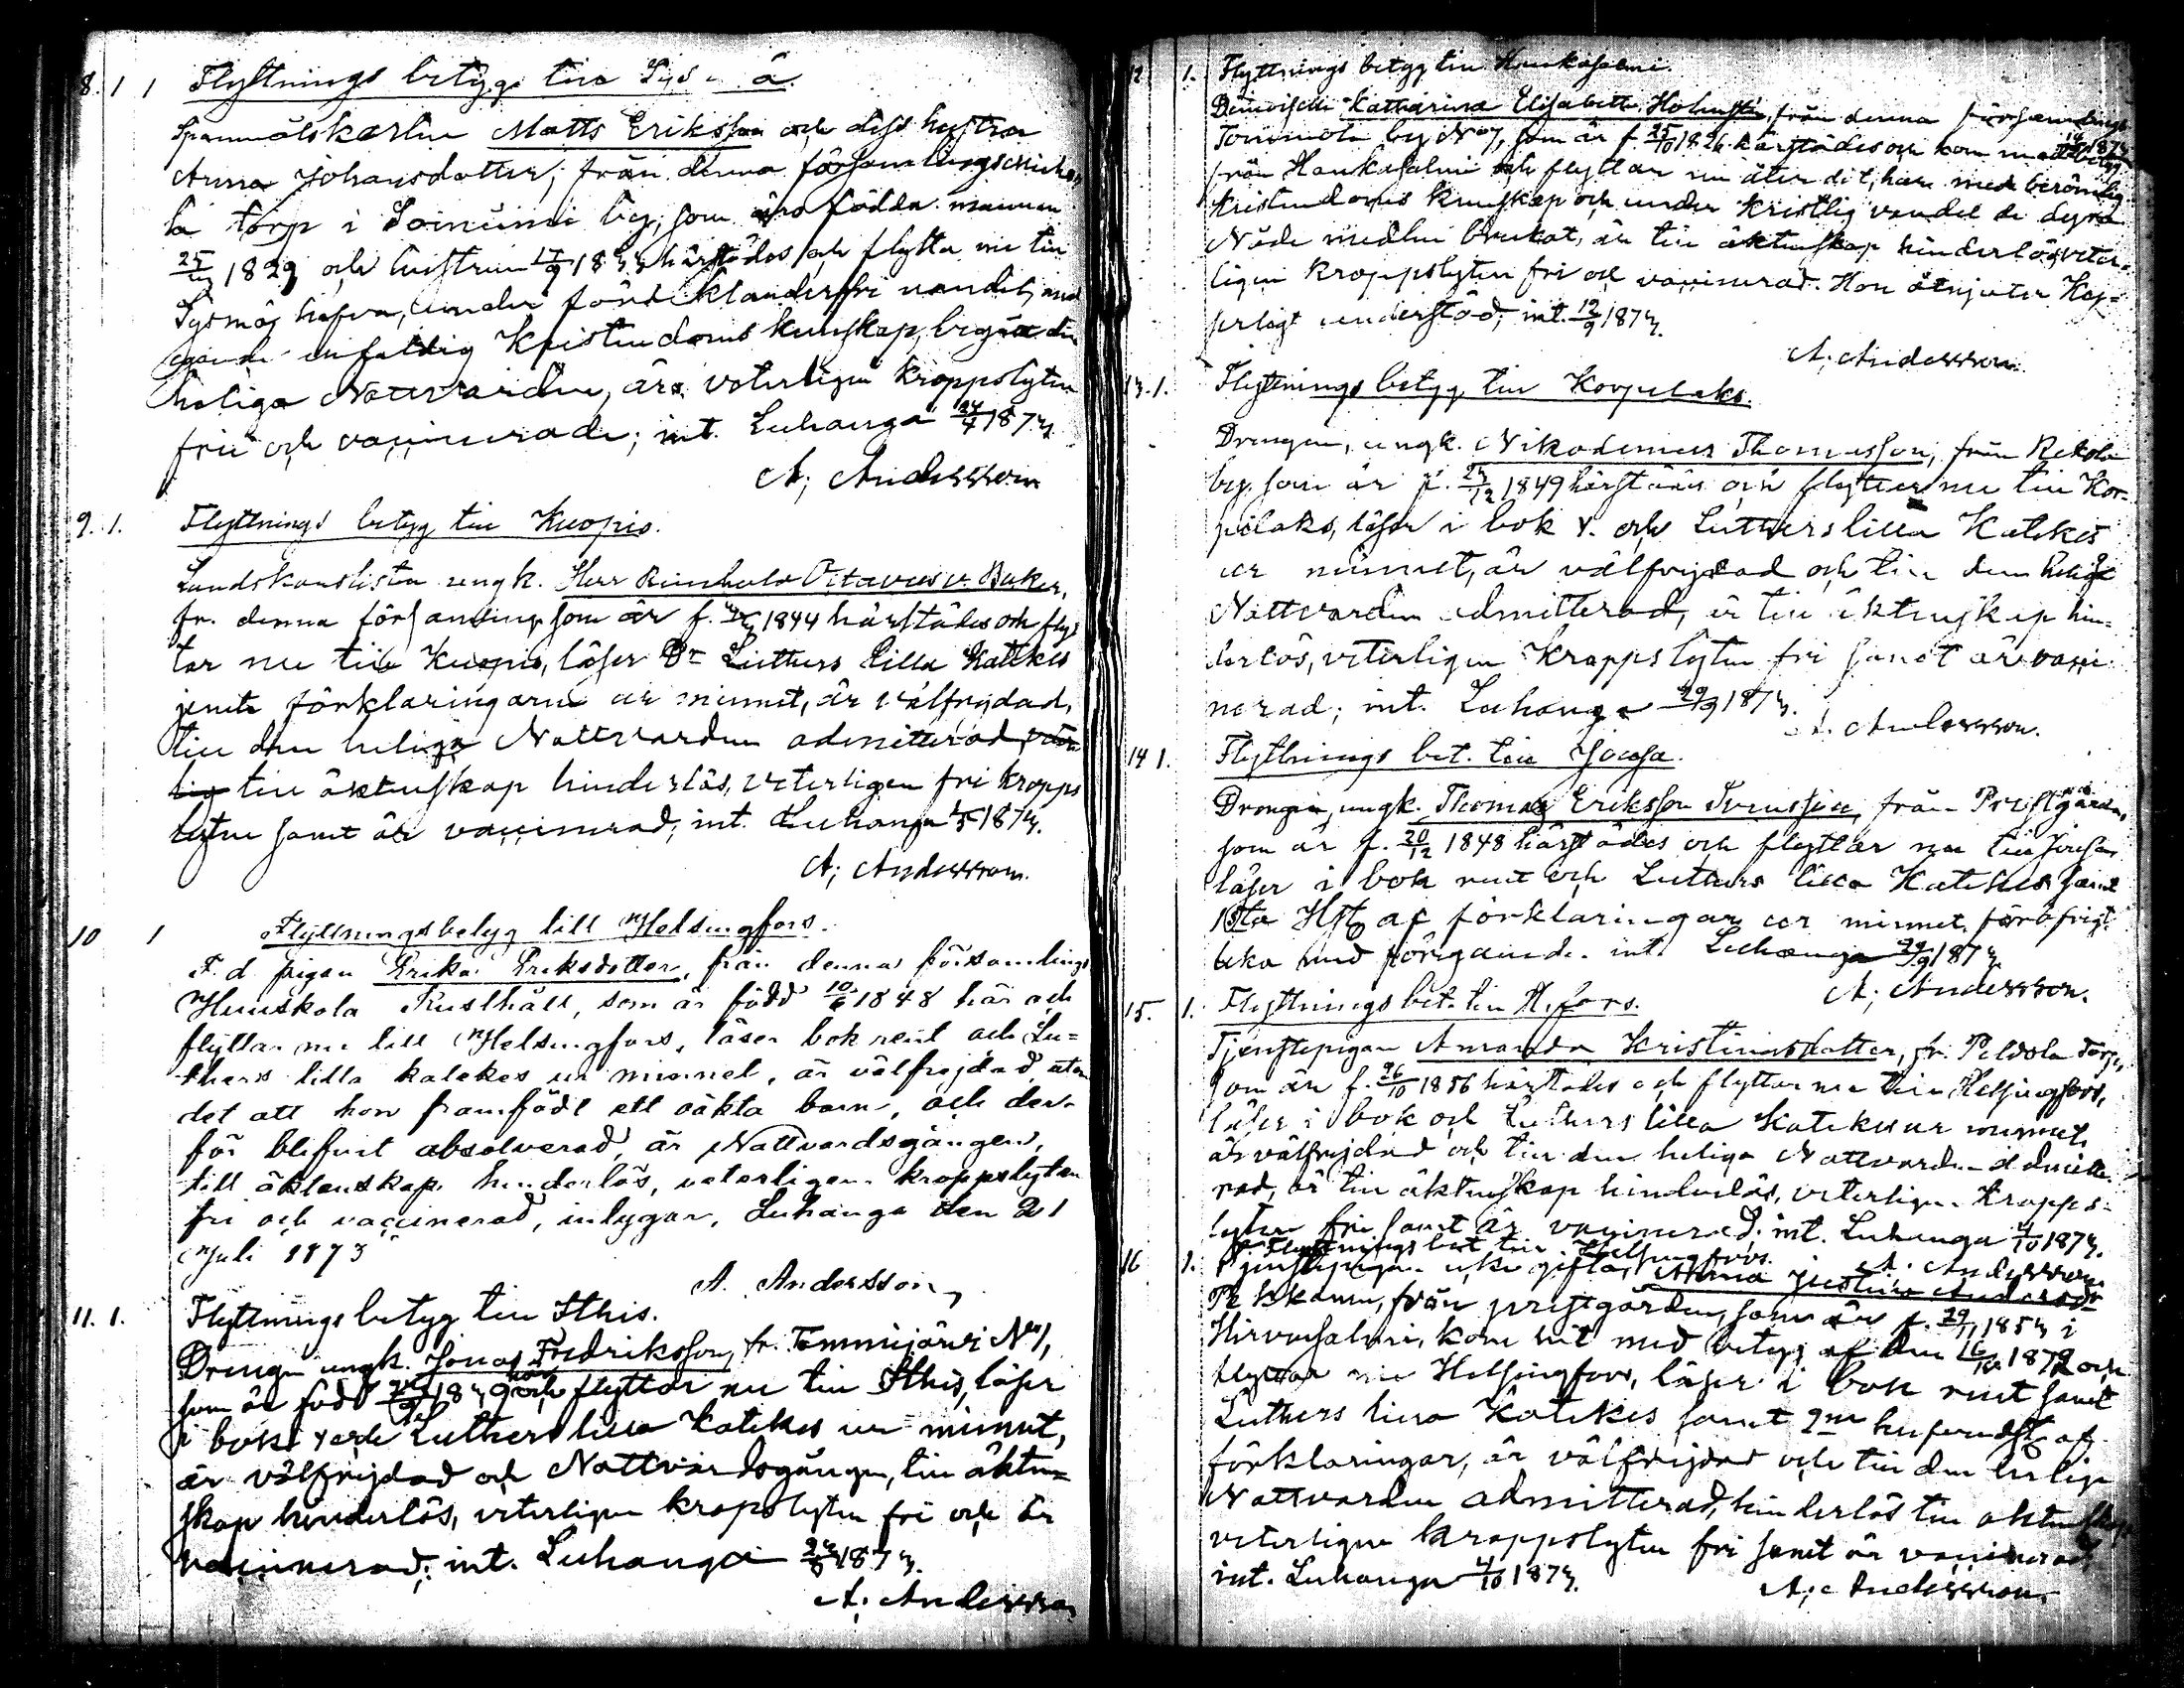 8. 1 1 Flyttnings betyg till Sysmä.
Spannmålskarlen Matts Eriksson och dess hustru
Anna Johansdotter, från denna församlings
la torp i Toiniemi by, som äro födda mannen
1829 och hustrun härstädes och flytta nu till
Sysmä; hafva, under förd klanderfri vandel, med
egande enfaldig Kristendoms kunskap, begått den
heliga Nattvarden, äro veterligen kroppslyten
fria och vaccinerade; int. Luhanga 24/7 1873.
A; Andersson
9. 1. Flyttnings betyg till Kuopio.
Landskanslisten ungk. Herr Reinhold Octavius v. Baker,
fr. denna församling som är f. 1844 härstädes och flyt
tar nu till Kuopio, läser Dr Luthers lilla Katekes
jemte förklaringarne ur minnet, är välfrejdad,
till den heliga Nattvarden admitterad,
till äktenskap hinderlös, veterligen fri kropps
lyten samt är vaccinerad; int. Luhanga 1873.
A; Andersson.
10 1 Flyttningsbetyg till Helsingfors.
F. d. pigan Erika Eriksdotter, från denna församlings
Hunskola Rusthåll, som är född 10/6 1848 här och
flyttar nu till Helsingfors, läser bok rent och Lu=
thers lilla katekes ur minnet, är välfrejdad utom
det att hon framfödt ett oäkta barn, och der-
för blifvit absolverad, är Nattvardsgången,
till äktenskap hinderlös, veterligen kroppslyten
fri och vaccinerad, intygar, Luhanga den 21
Juli 1873
A. Andersson,
11. 1. Flyttnings betyg till Sthis.
Drengen ungk. Jonas Fredriksson, fr. Tommijärvi No 1,
som är född 1849 här och flyttar nu till Sthis, läser
i bok och Luthers lilla Katekes ur minnet,
är välfrejdad och Nattvardsgången, till äkten=
skap hinderlös, veterligen kropslyten fri och är
vaccinerad; int. Luhanga 1873.
A; Andersson
12 1. Flyttnings betyg till Hankasalmi.
Demoiselle Katharina Elisabeth Holmstén, från denna församlings
Tommola by No 7, som är f. 25/10 1826 härstädes och kom med betyg 1873
från Hankasalmi och flyttar nu åter dit, har med berömlig
kristendoms kunskap och under kristlig vandel de dyra
Nåde medlen brukat, är till äktenskap hinderlös, veter-
ligen kroppslyten fri och vaccinerad. Hon åtnjuter Kej=
serligt understöd; int. 12/9 1873.
A; Andersson.
13. 1. Flyttnings betyg till Korpilaks.
Drengen, ungk. Nikodemus Thomasson, från Rekola
by som är f. 23/12 1849 härstädes och flyttar nu till Kor-
pilaks, läser i bok v. och Luthers lilla Katekes
ur minnet, är välfrejdad och till den heliga
Nattvarden admitterad, är till äktenskap hin=
derlös, veterligen kroppslyten fri samt är vacci
nerad; int. Luhanga 29/9 1873.
A. Andersson.
14 1. Flyttnings bet. till Joutsa.
Drengen, ungk. Thomas Eriksson Svensson, från Prestgården,
som är f. 20/12 1848 härstädes och flyttar nu till Joutsa
läser i bok rent och Luthers lilla Katekes samt
1sta Hft af förklaringar ur minnet, föröfrigt
lika med föregående. int. Luhanga 29/9 1873
A; Andersson.
15. 1. Flyttnings bet. till H.fors.
Tjenstepigan Amanda Kristiansdotter, fr. Peldola Torp,
som är f. 26/10 1856 härstädes och flyttar nu till Helsingfors,
läser i bok och Luthers lilla Katekes ur minnet,
är välfrejdad och till den heliga Nattvarden admitte
rad, är till äktenskap hinderlös, veterligen kropps-
lyten fri samt är vaccinerad; int. Luhanga 4/10 1873.
A. Andersson
16 1. Flyttnings bet. till Helsingfors.
Tjenstepigan ogifta Anna Justina Andersdr
från prestgården, som är f. 29/11 1853 i
Hirvensalmi, kom hit med betyg af den 1872 och
flyttar nu Helsingfors, läser i bok rent samt
Luthers lilla Katekes samt 2ne hufvudst. af
förklaringar, är välfrejdad och till den heliga
Nattvarden admitterad, hinderlös till äktenskap
veterligen kroppslyten fri samt är vaccinerad,
int. Luhanga 4/10 1873.
A; Andersson.